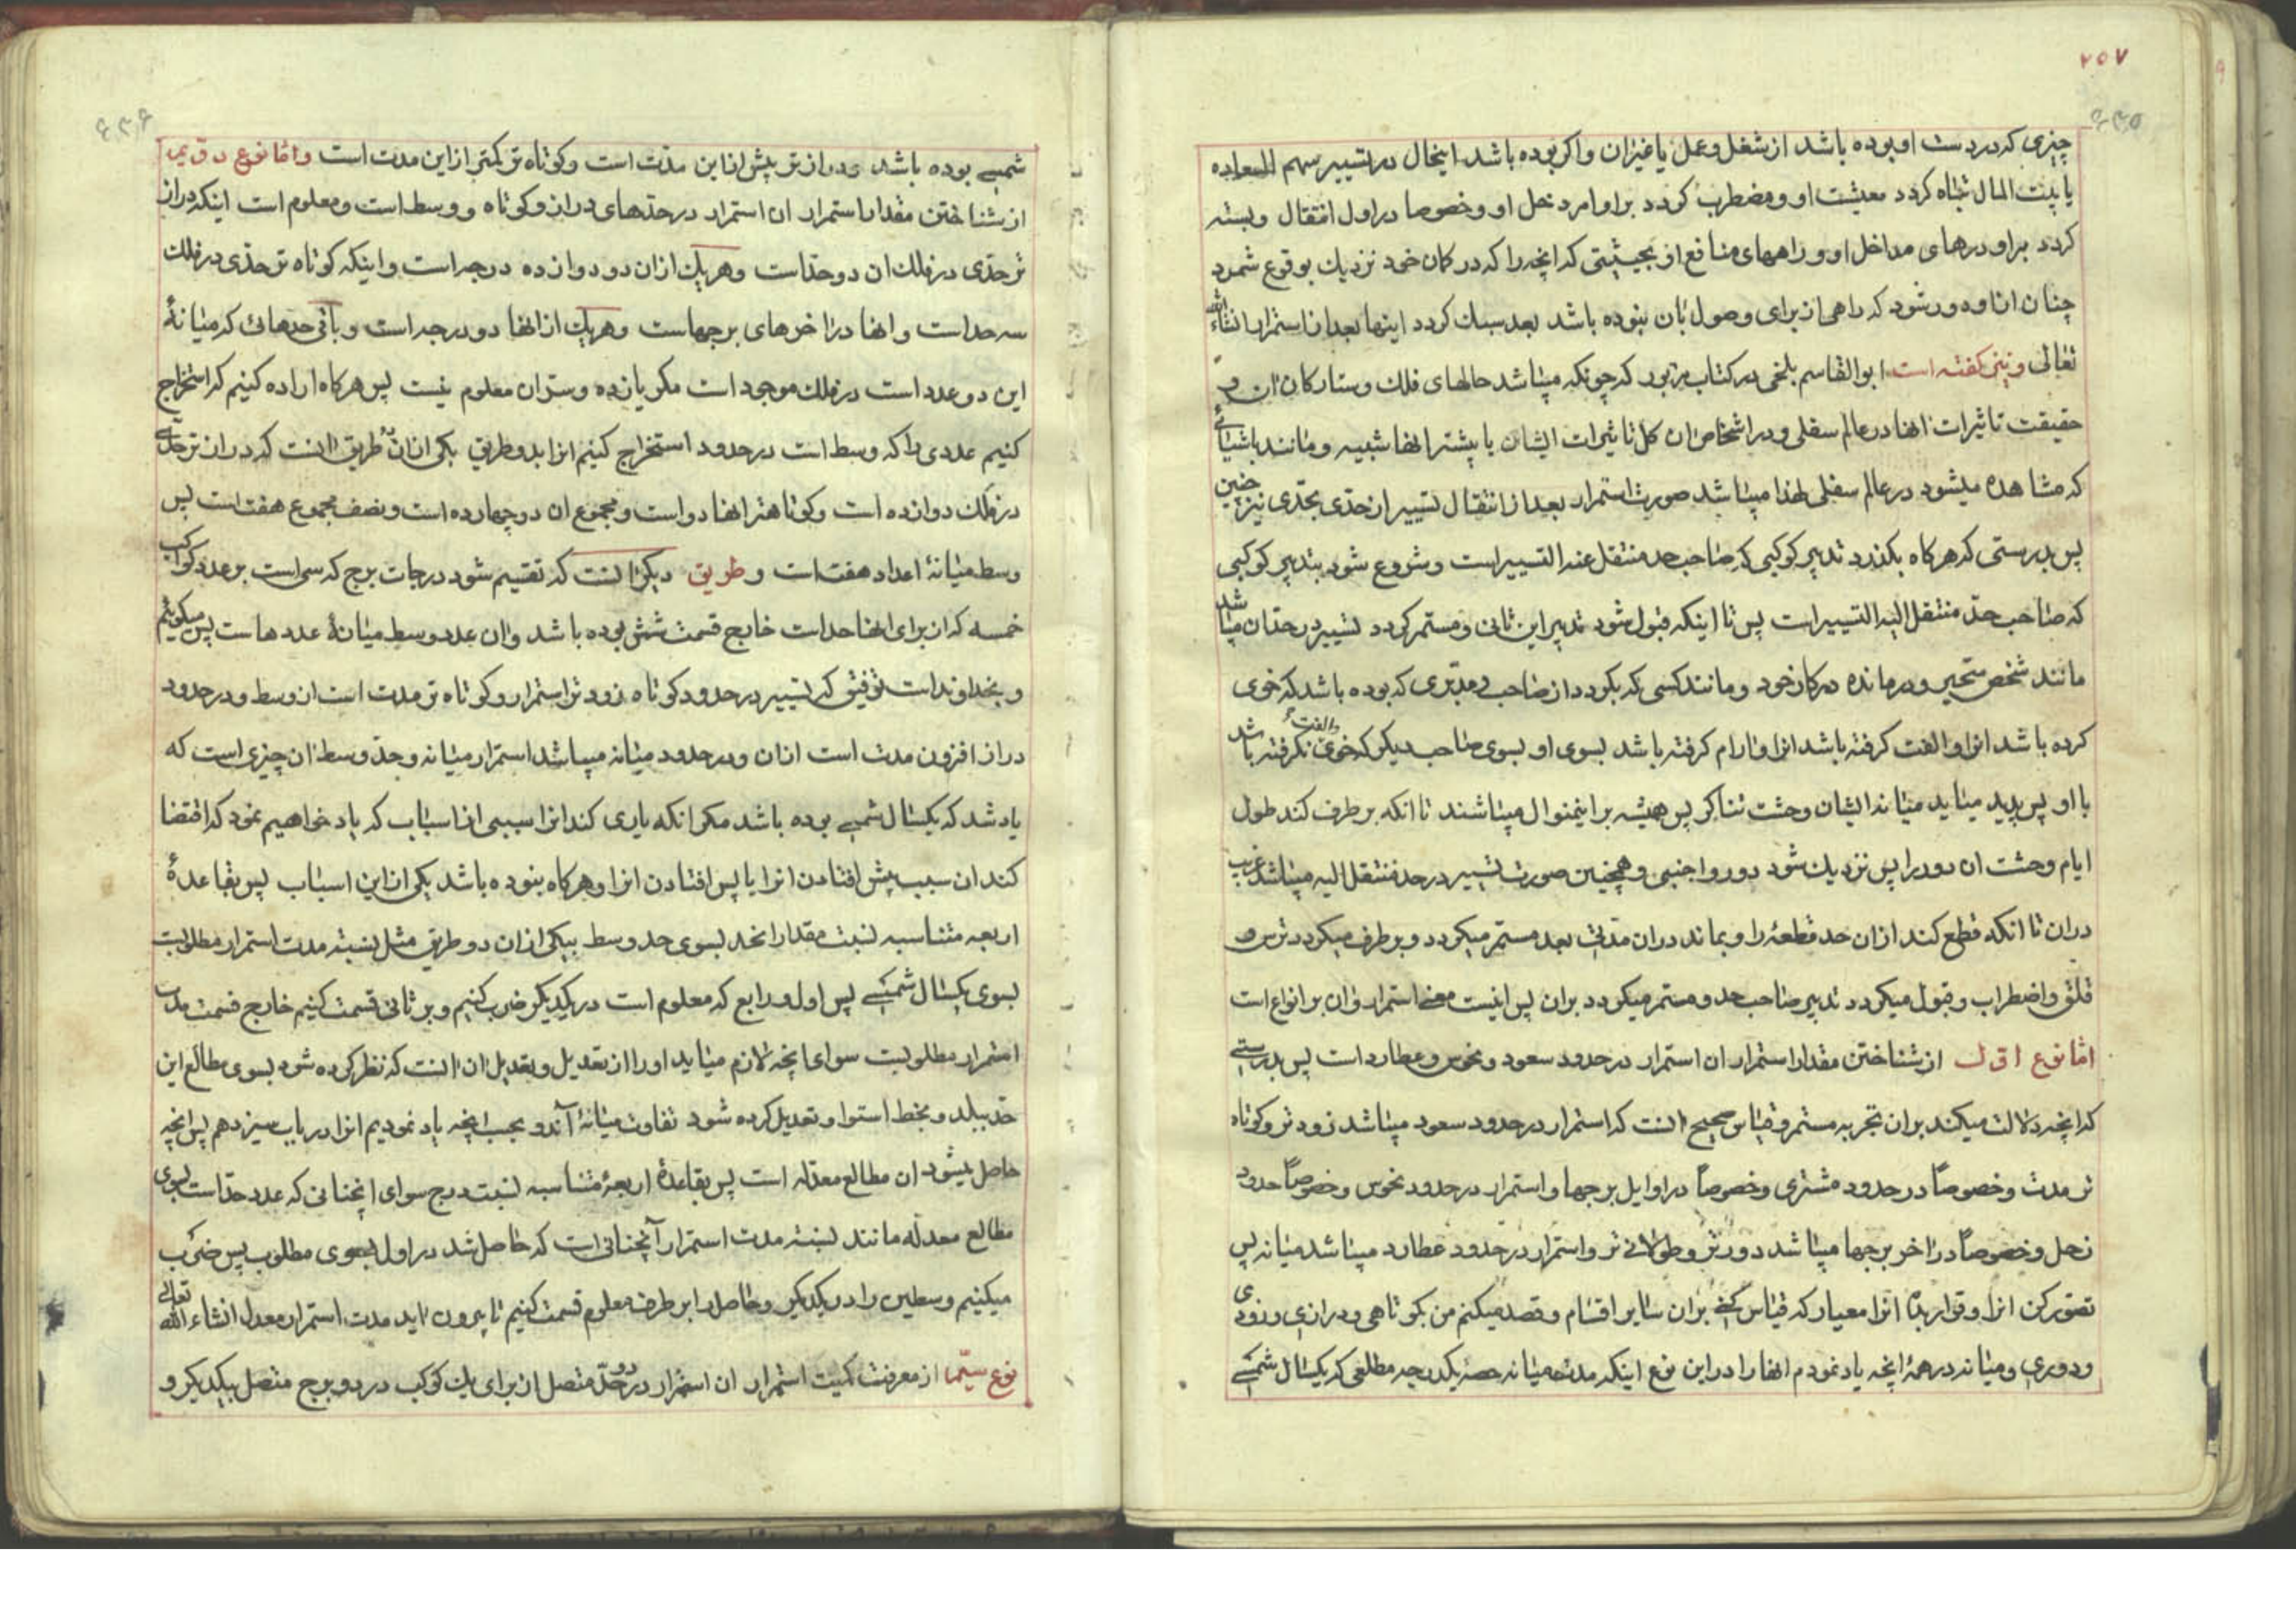 ۲۵۷
چیزی که در دست او بوده باشد از شغل و عمل یا غیر آن و اکر بوده باشد اینحال در تسییر سهم السعاده
یا بیت المال تباه کردد معیشت او و مضطرب کردد بر او امر دخل او و خصوصا در اول انتقال و بسته
کردد بر او درهای مداخل او و راههای منافع او بحیثیتی که انچه را که در کمان خود نزدیک بوقوع شمرد
چنان از او دور شود که راهی از برای وصول بان نبوده باشد بعد سبک کردد اینها بعد از استمرار انشاء الله
تعالی و نیز کفته است ابوالقاسم بلخی در کتاب مزبور که چونکه میباشد حالهای فلک و ستارکان ان و
حقیقت تاثیرات انها در عالم سفلی و در اشخاص ان کل تاثیرات ایشان یا بیشتر انها شبیه و مانند باشیائی
که مشاهده میشود در عالم سفلی لهذا میباشد صورت استمرار بعد از انتقال تسییر از حدی بحدی نیز چنین
پس بدرستی که هرکاه بکذرد تدبیر کوکبی که صاحب حد منتقل عنه التسییر است و شروع شود بتدبیر کوکبی
که صاحب حد منتقل الیه التسییر است پس تا اینکه قبول شود تدبیر این ثانی و مستمر کردد تسییر در حد ان میباشد
مانند شخص متحیر و درمانده در کار خود و مانند کسی که بکردد از صاحب و مدبری که بوده باشد که خوی
کرده باشد انرا و الفت کرفته باشد انرا و ارام کرفته باشد بسوی او بسوی صاحب دیکر که خوی و الفت نکرفته باشد
با او پس پدید میاید میانه ایشان وحشت تناکر پس همیشه بر اینمنوال میباشند تا انکه بر طرف کند طول
ایام وحشت ان دو را پس نزدیک شود دور و اجنبی و همچنین صورت تسییر در حد منتقل الیه میباشد غریب
در ان تا انکه قطع کند از ان حد قطعهٔ را و بماند در ان مدتی بعد مستمر میکردد و بر طرف میکردد ترس و
قلق و اضطراب و قبول میکردد تدبیر صاحب حد و مستمر میکردد بران پس اینست معنی استمرار و ان بر انواع است
اما نوع اول از شناختن مقدار استمرار ان استمرار در حدود سعود و نحوس و عطارد است پس بدرستی
که انچه دلالت میکند بران تجربه مستمر و قیاس صحیح انست که استمرار در حدود سعود میباشد زودتر و کوتاه
تر مدت و خصوصاً در حدود مشتری و خصوصاً در اوایل برجها و استمرار در حدود نحوس و خصوصاً حدود
زحل و خصوصاً در اخر برجها میباشد دورتر و طولانی تر و استمرار در حدود عطارد میباشد میانه پس
تصور کن انرا و قرار بده انرا معیار که قیاس کنی بران سایر اقسام و قصد میکنم من بکوتاهی و درازی و زودی
و دوری و میانه در همهٔ انچه یاد نمودم انها را در این نوع اینکه مدت میانه حصه یکدرجه مطلعی که یکسال شمسی
شمسی بوده باشد و دراز تر بیش از این مدت است و کوتاه تر کمتر از این مدت است و اما نوع دویم
از شناختن مقدار استمرار ان استمرار در حدهای دراز و کوتاه و وسط است و معلوم است اینکه دراز
تر حدی در فلک ان دو حد است و هریک از ان دو دوازده درجه است و اینکه کوتاه تر حدی در فلک
سه حد است و انها در اخرهای برجهاست و هریک از انها دو درجه است و باقی حدهائی که میانهٔ
این دو عدد است در فلک موجود است مکر یازده و ستر ان معلوم نیست پس هرکاه اراده کنیم که استخراج
کنیم عددی را که وسط است در حدود استخراج کنیم انرا بدو طریق یکی از ان دو طریق انست که دراز تر حدی
در فلک دوازده است و کوتاهتر انها دو است و مجموع ان دو چهارده است و نصف مجموع هفت است پس
وسط میانهٔ اعداد هفت است و طریق دیکر انست که تقسیم شود درجات برج که سی است بر عدد کواکب
خمسه که از برای انها حد است خارج قسمت شش بوده باشد و ان عدد وسط میانهٔ عددهاست پس میکوئیم
و بخداوند است توفیق که تسییر در حدود کوتاه زود تر استمرار و کوتاه تر مدت است از وسط و در حدود
دراز افزون مدت است از ان و در حدود میانه میباشد استمرار میانه و حد وسط ان چیزی است که
یاد شد که یکسال شمسی بوده باشد مکر انکه یاری کند انرا سببی از اسباب که یاد خواهیم نمود که اقتضا
کند ان سبب پیش افتادن انرا یا پس افتادن انرا و هرکاه نبوده باشد یکی از این اسباب پس بقاعدهٔ
اربعه متناسبه نسبت مقدار انحد بسوی حد وسط بیکی از ان دو طریق مثل نسبت مدت استمرار مطلوبست
بسوی یکسال شمسی پس اول و رابع که معلوم است در یکدیکر ضرب کنیم و بر ثانی قسمت کنیم خارج قسمت مدت
استمرار مطلوبست سوای انچه لازم میاید او را از تعدیل و تعدیل ان انست که نظر کرده شود بسوی مطالع این
حد ببلد و بخط استوا و تعدیل کرده شود تفاوت میانهٔ آندو بحسب انچه یاد نمودیم انرا در باب سیزدهم پس انچه
حاصل میشود ان مطالع معدله است پس بقاعدهٔ اربعهٔ متناسبه نسبت درج سوای انچنانی که عدد حد است بسوی
مطالع معدله مانند نسبت مدت استمرار آنچنانی است که حاصل شد در اول بسوی مطلوب پس ضرب
میکنیم وسطین را در یکدیکر و حاصل را بر طرف معلوم قسمت کنیم تا بیرون اید مدت استمرار معدل انشاء الله تعالی
نوع سیم از معرفت کمیت استمرار ان استمرار در دو حد متصل از برای یک کوکب در دو برج متصل بیکدیکر و